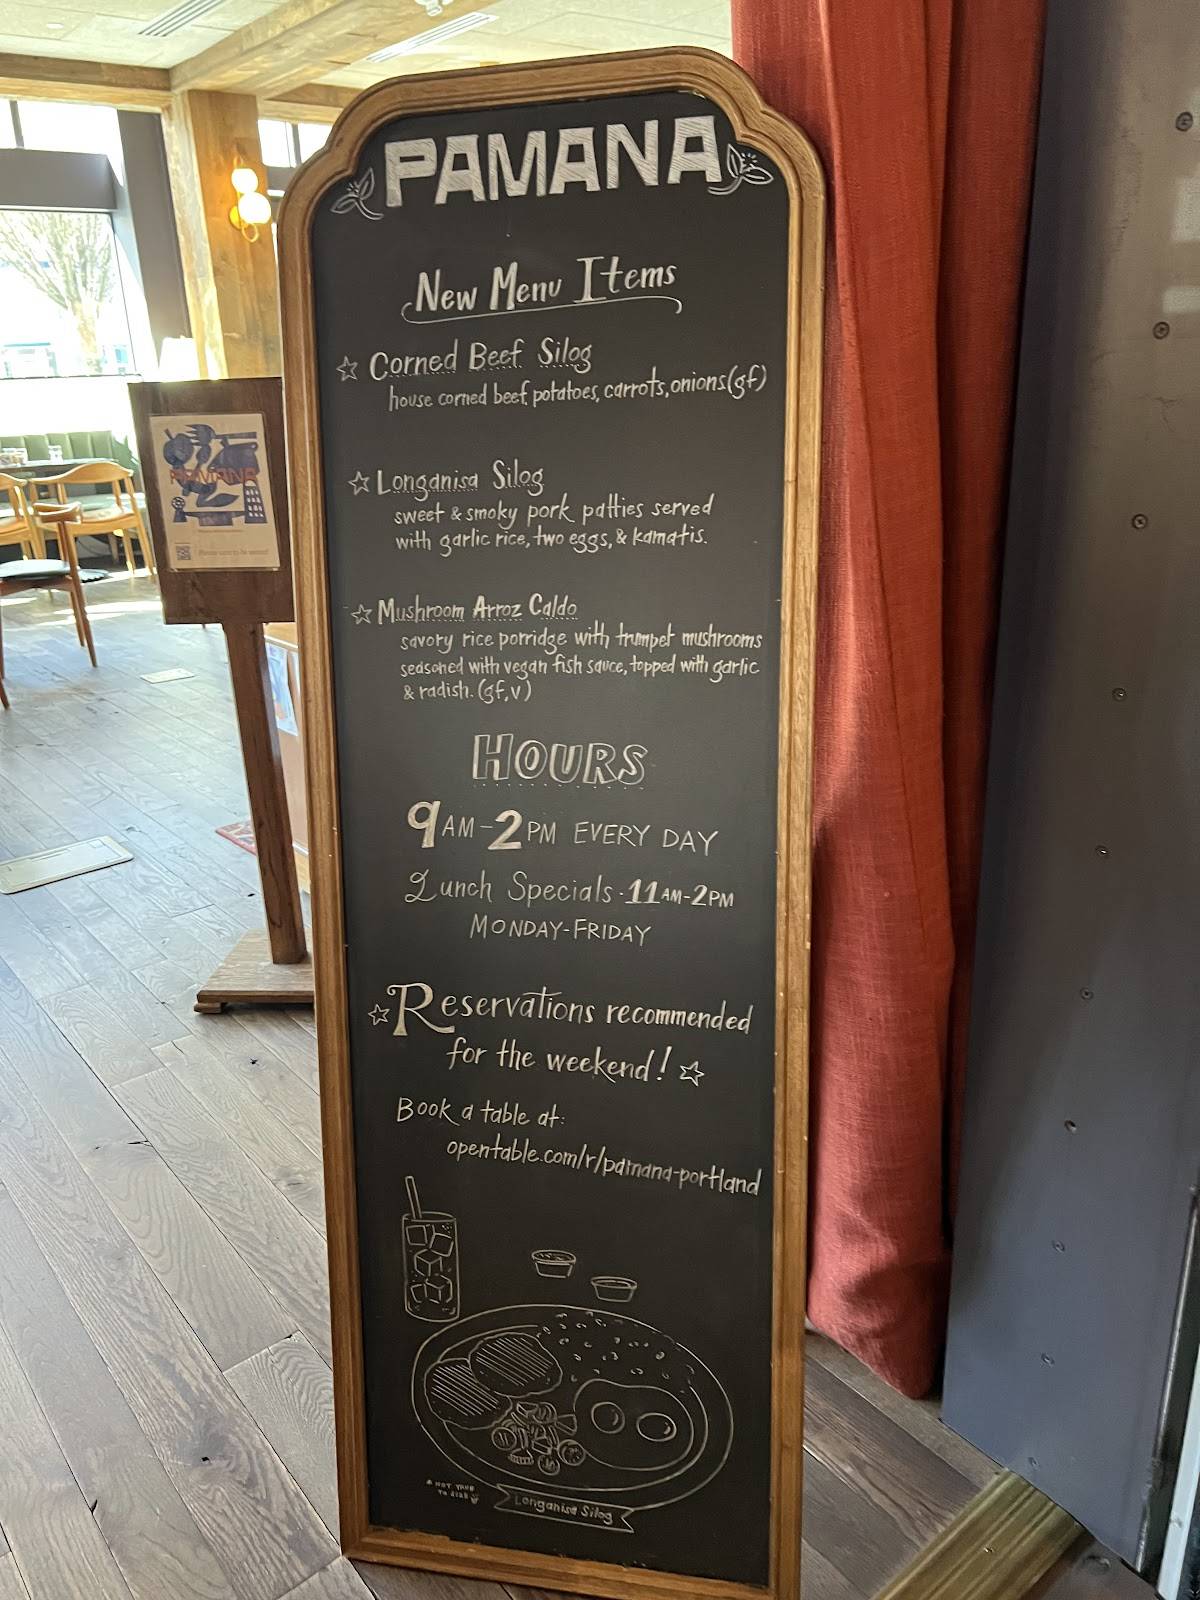 PAMANA
New Menu Items
☆ Corned Beef Silog
house corned beef, potatoes, carrots, onions (gf)
☆ Longanisa Silog
sweet & smoky pork patties served
with garlic rice, two eggs, & kamatis.
☆ Mushroom Arroz Caldo
savory rice porridge with trumpet mushrooms
seasoned with vegan fish sauce, topped with garlic
& radish. (gf, v)
HOURS
9AM-2PM EVERY DAY
Lunch Specials · 11AM-2PM
MONDAY-FRIDAY
☆ Reservations recommended
for the weekend! ☆
Book a table at:
opentable.com/r/pamana-portland
Longanisa Silog
PAMANA